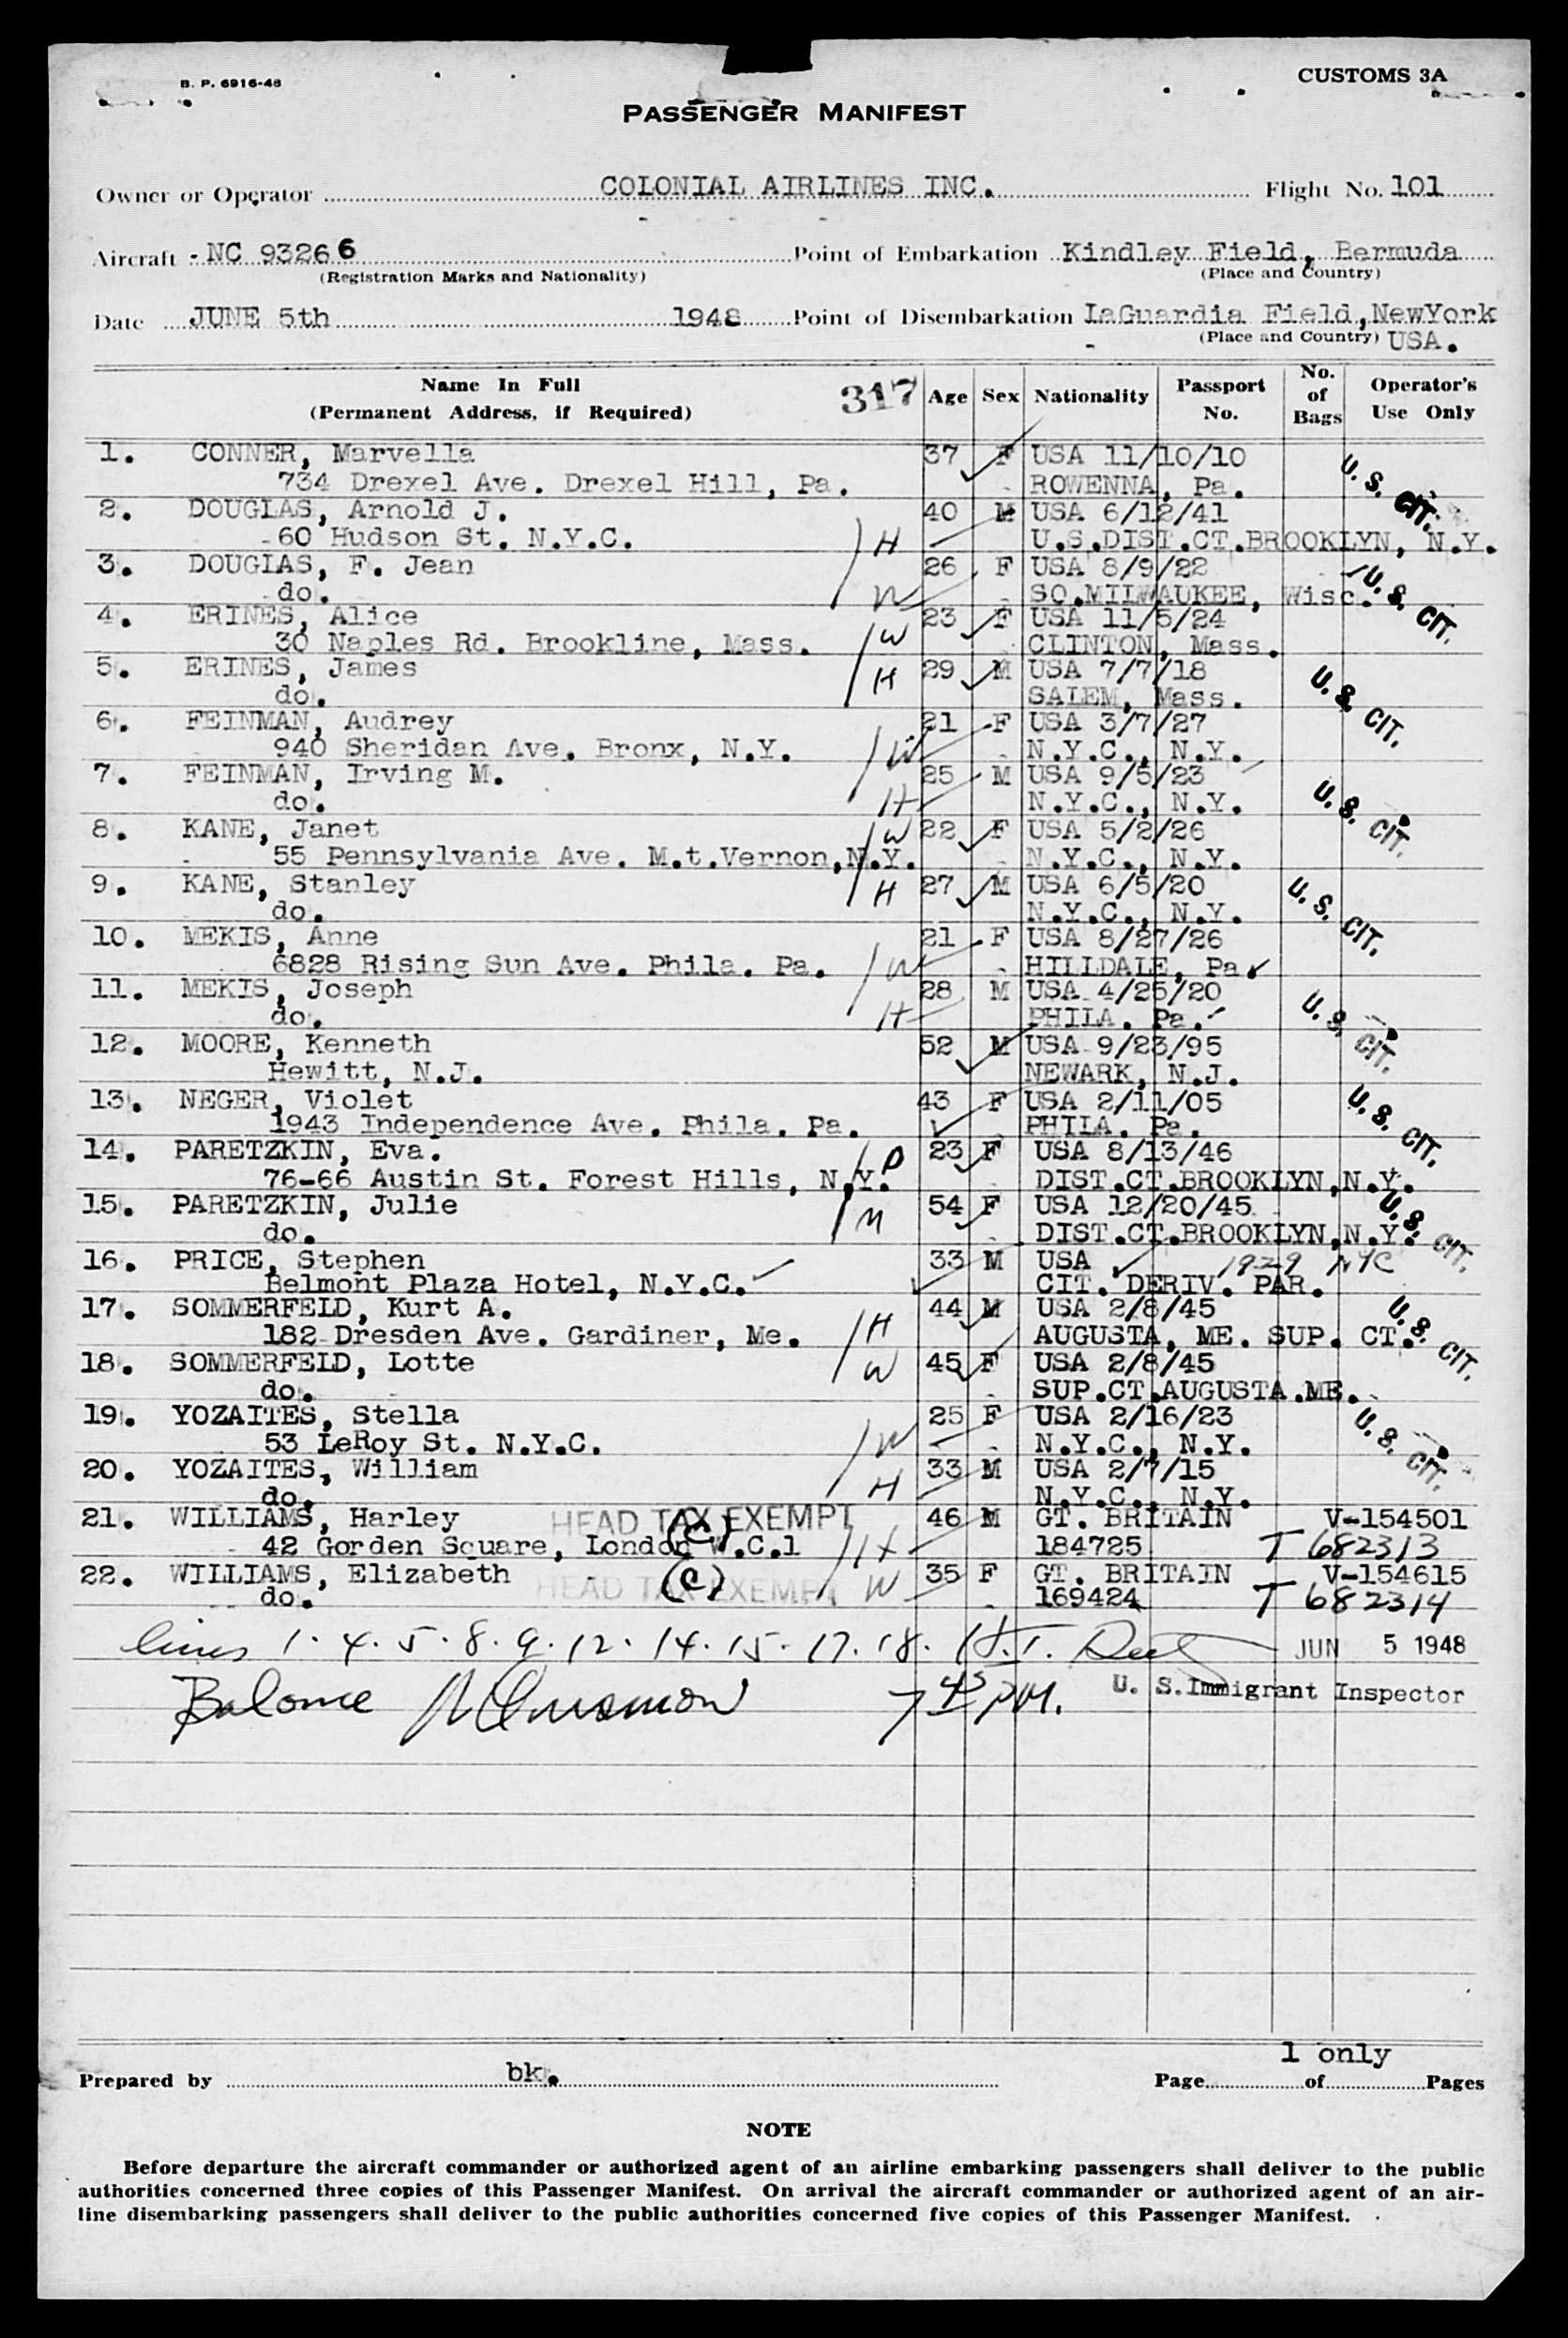 B. P. 6916-48
CUSTOMS 3A
PASSENGER MANIFEST
Owner or Operator COLONIAL AIRLINES INC. Flight No. 101
Aircraft - NC 93266 Point of Embarkation Kindley Field, Bermuda
(Registration Marks and Nationality) (Place and Country)
Date JUNE 5th 1948 Point of Disembarkation LaGuardia Field,NewYork
(Place and Country) USA.
Name In Full (Permanent Address, if Required) 317 Age Sex Nationality Passport No. No. of Bags Operator's Use Only
1. CONNER, Marvella 37 F USA 11/10/10
734 Drexel Ave. Drexel Hill, Pa. ROWENNA, Pa. U. S. CIT.
2. DOUGLAS, Arnold J. 40 M USA 6/12/41
60 Hudson St. N.Y.C. H U.S.DIST.CT.BROOKLYN, N.Y.
3. DOUGLAS, F. Jean 26 F USA 8/9/22
do. W SO.MILWAUKEE, Wisc. U. S. CIT.
4. ERINES, Alice 23 F USA 11/5/24
30 Naples Rd. Brookline, Mass. W CLINTON, Mass.
5. ERINES, James 29 M USA 7/7/18
do. H SALEM, Mass. U. S. CIT.
6. FEINMAN, Audrey 21 F USA 3/7/27
940 Sheridan Ave. Bronx, N.Y. W N.Y.C., N.Y.
7. FEINMAN, Irving M. 25 M USA 9/5/23
do. H N.Y.C., N.Y. U. S. CIT.
8. KANE, Janet W 22 F USA 5/2/26
55 Pennsylvania Ave. M.t.Vernon,N.Y. N.Y.C., N.Y.
9. KANE, Stanley H 27 M USA 6/5/20
do. N.Y.C., N.Y. U. S. CIT.
10. MEKIS, Anne 21 F USA 8/27/26
6828 Rising Sun Ave. Phila. Pa. W HILLDALE, Pa.
11. MEKIS, Joseph 28 M USA 4/25/20
do. H PHILA. Pa. U. S. CIT.
12. MOORE, Kenneth 52 M USA 9/23/95
Hewitt, N.J. NEWARK, N.J.
13. NEGER, Violet 43 F USA 2/11/05
1943 Independence Ave. Phila. Pa. PHILA. Pa. U. S. CIT.
14. PARETZKIN, Eva. D 23 F USA 8/13/46
76-66 Austin St. Forest Hills, N.Y. DIST.CT.BROOKLYN,N.Y.
15. PARETZKIN, Julie M 54 F USA 12/20/45
do. DIST.CT.BROOKLYN,N.Y. U. S. CIT.
16. PRICE, Stephen 33 M USA 1929 NYC
Belmont Plaza Hotel, N.Y.C. CIT. DERIV. PAR.
17. SOMMERFELD, Kurt A. H 44 M USA 2/8/45
182 Dresden Ave. Gardiner, Me. AUGUSTA, ME. SUP. CT. U. S. CIT.
18. SOMMERFELD, Lotte W 45 F USA 2/8/45
do. SUP.CT.AUGUSTA.ME.
19. YOZAITES, Stella 25 F USA 2/16/23
53 LeRoy St. N.Y.C. W N.Y.C., N.Y. U. S. CIT.
20. YOZAITES, William 33 M USA 2/7/15
do. H N.Y.C., N.Y.
21. WILLIAMS, Harley HEAD TAX EXEMPT 46 M GT. BRITAIN V-154501
42 Gorden Square, London W.C.1 (C) H 184725 T 682313
22. WILLIAMS, Elizabeth HEAD TAX EXEMPT (C) W 35 F GT. BRITAIN V-154615
do. 169424 T 682314
lines 1. 4. 5. 8. 9. 12. 14. 15. 17. 18. JUN 5 1948
Balance 7 45 PM. U. S. Immigrant Inspector
1 only
Prepared by bk. Page of Pages
NOTE
Before departure the aircraft commander or authorized agent of an airline embarking passengers shall deliver to the public
authorities concerned three copies of this Passenger Manifest. On arrival the aircraft commander or authorized agent of an air-
line disembarking passengers shall deliver to the public authorities concerned five copies of this Passenger Manifest.